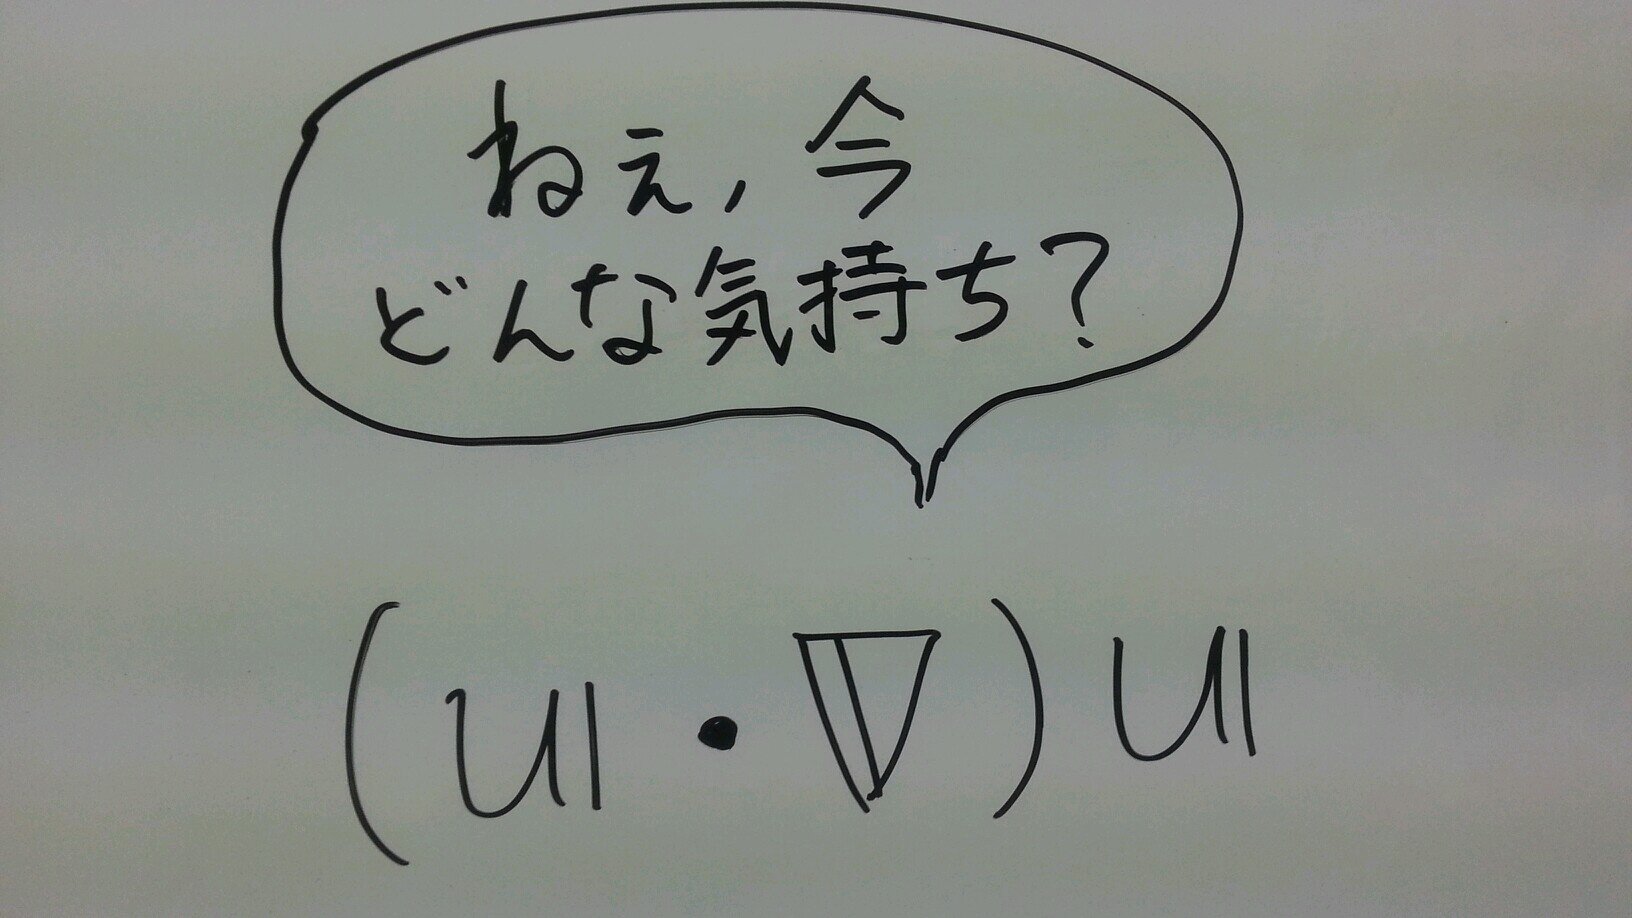 ねぇ,今
どんな気持ち?
(𝕦・∇)𝕦